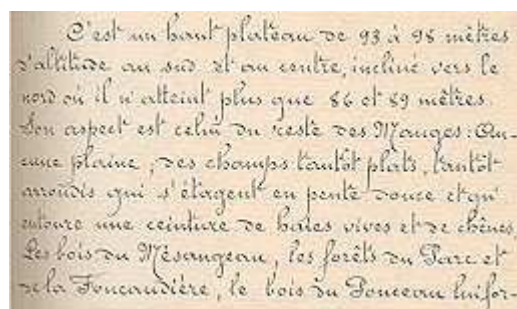 C'est un haut plateau de 93 à 98 mètres
d'altitude au sud et au centre, incliné vers le
nord où il n'atteint plus que 86 et 89 mètres.
Son aspect est celui du reste des Mauges : Au-
cune plaine ; des champs tantôt plats, tantôt
arrondis qui s'étagent en pente douce et qu'
entoure une ceinture de haies vives et de chênes.
Les bois du Mésangeau, les forêts du Parc et
de la Foucaudière, le bois du Ponceau lui for-